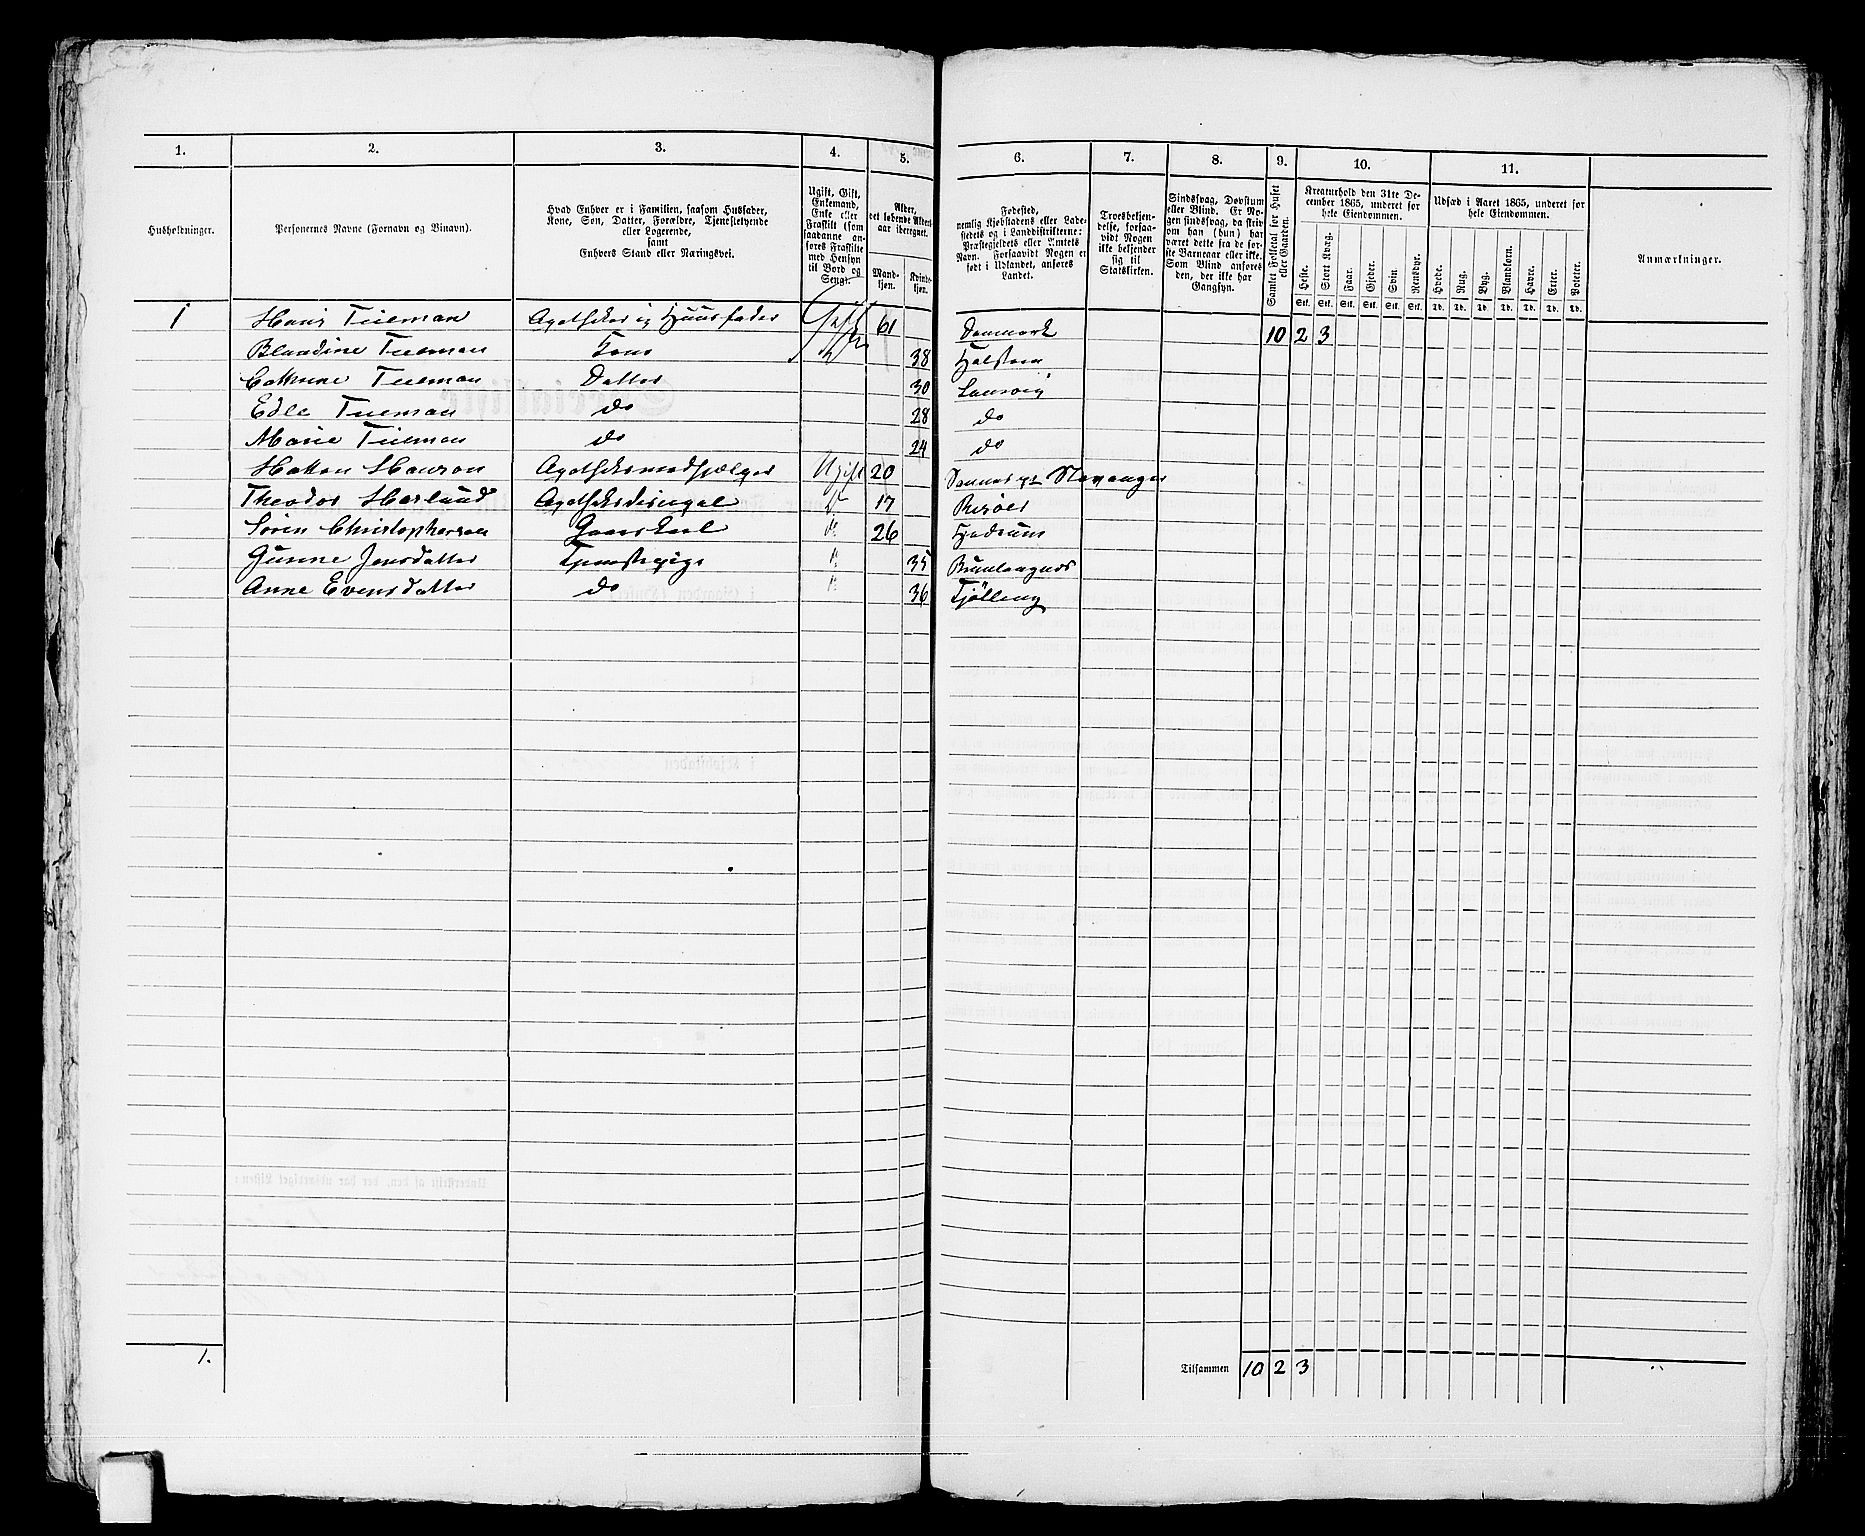 1. 2. 3. 4. 5. 6. 7. 8. 9. 10. 11.
Husholdninger.
Personernes Navne (Fornavn og Binavn).
Hvad Enhver er i Familien, saasom Husfader,
Kone, Søn, Datter, Forældre, Tjenestetyende
eller Logerende,
samt
Enhvers Stand eller Næringsvei.
Ugift, Gift,
Enkemand,
Enke eller
Fraskilt (som
saadanne an-
føres Fraskilte
med Hensyn
til Bord og
Seng).
Alder,
det løbende Alders-
aar iberegnet.
Mand-
kjøn.
Kvinde-
kjøn.
Fødested,
nemlig Kjøbstadens eller Lade-
stedets og i Landdistrikterne:
Præstegjeldets eller Amtets
Navn. Forsaavidt Nogen er
født i Udlandet, anføres
Landet.
Troesbekjen-
delse, forsaa-
vidt Nogen
ikke bekjender
sig til
Statskirken.
Sindssvag, Døvstum
eller Blind. Er No-
gen sindssvag, da skriv
om han (hun) har
været dette fra de før-
ste Barneaar eller ikke.
Som Blind anføres
den, der ikke har
Gangsyn.
Samlet Folketal for Huset
eller Gaarden.
Kreaturhold den 31te De-
cember 1865, underet for
hele Eiendommen.
Heste. Stort Kvæg. Faar. Gjeder. Svin. Rensdyr.
Stk. Stk. Stk. Stk. Stk. Stk.
Udsæd i Aaret 1865, underet for
hele Eiendommen.
Hvede. Rug. Byg. Blandkorn. Havre. Erter. Poteter.
Td. Td. Td. Td. Td. Td. Td.
Anmærkninger.
1 Hans Tieman Apotheker og Huusfader Gift 61 Danmark 10 2 3
Blandine Tieman Kone 38 Holsteen
Cathrine Tieman Datter 30 Laurvig
Edle Tieman do 28 do
Marie Tieman do 24 do
Hakon Hanson Ugift 20 Stavanger
Theodor Hørlund 17 Risøer
Søren Christophersen Gaardskarl 26 Hedrum
Gunne Jensdatter Tjenestepige 35 Brunlaugnes
Anne Evensdatter do 36 Tjølling
1. Tilsammen 10 2 3